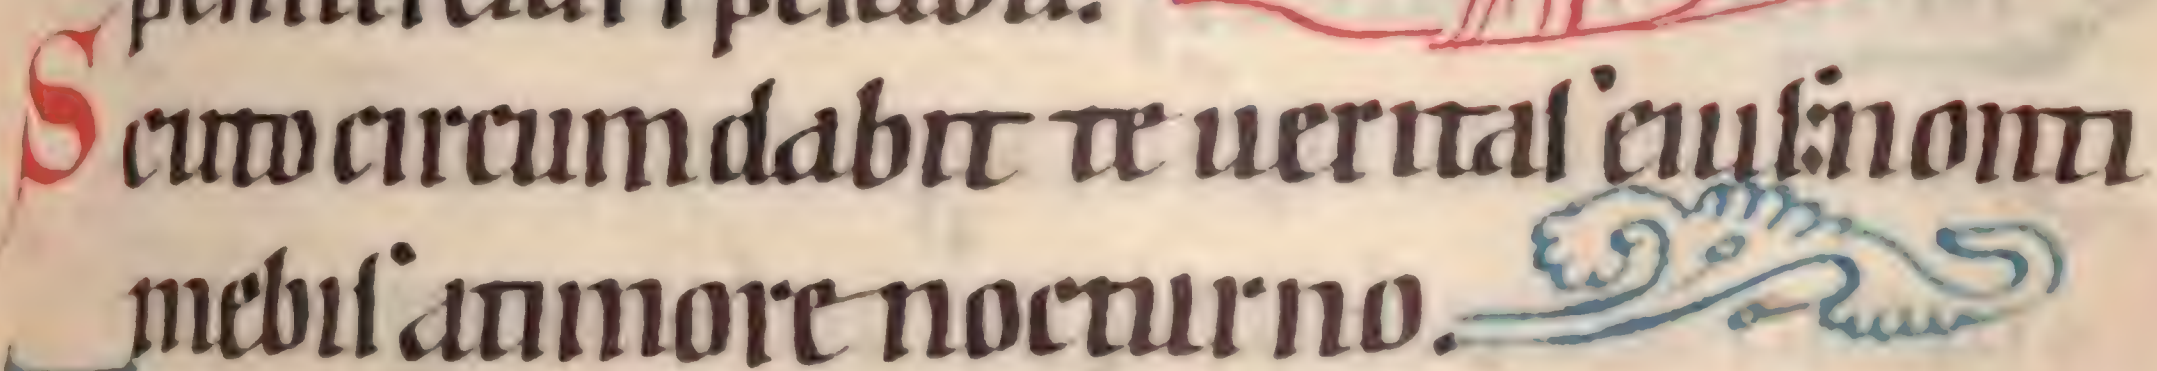 Scuto circumdabit te ueritas eius: non ti
mebis a timore nocturno.